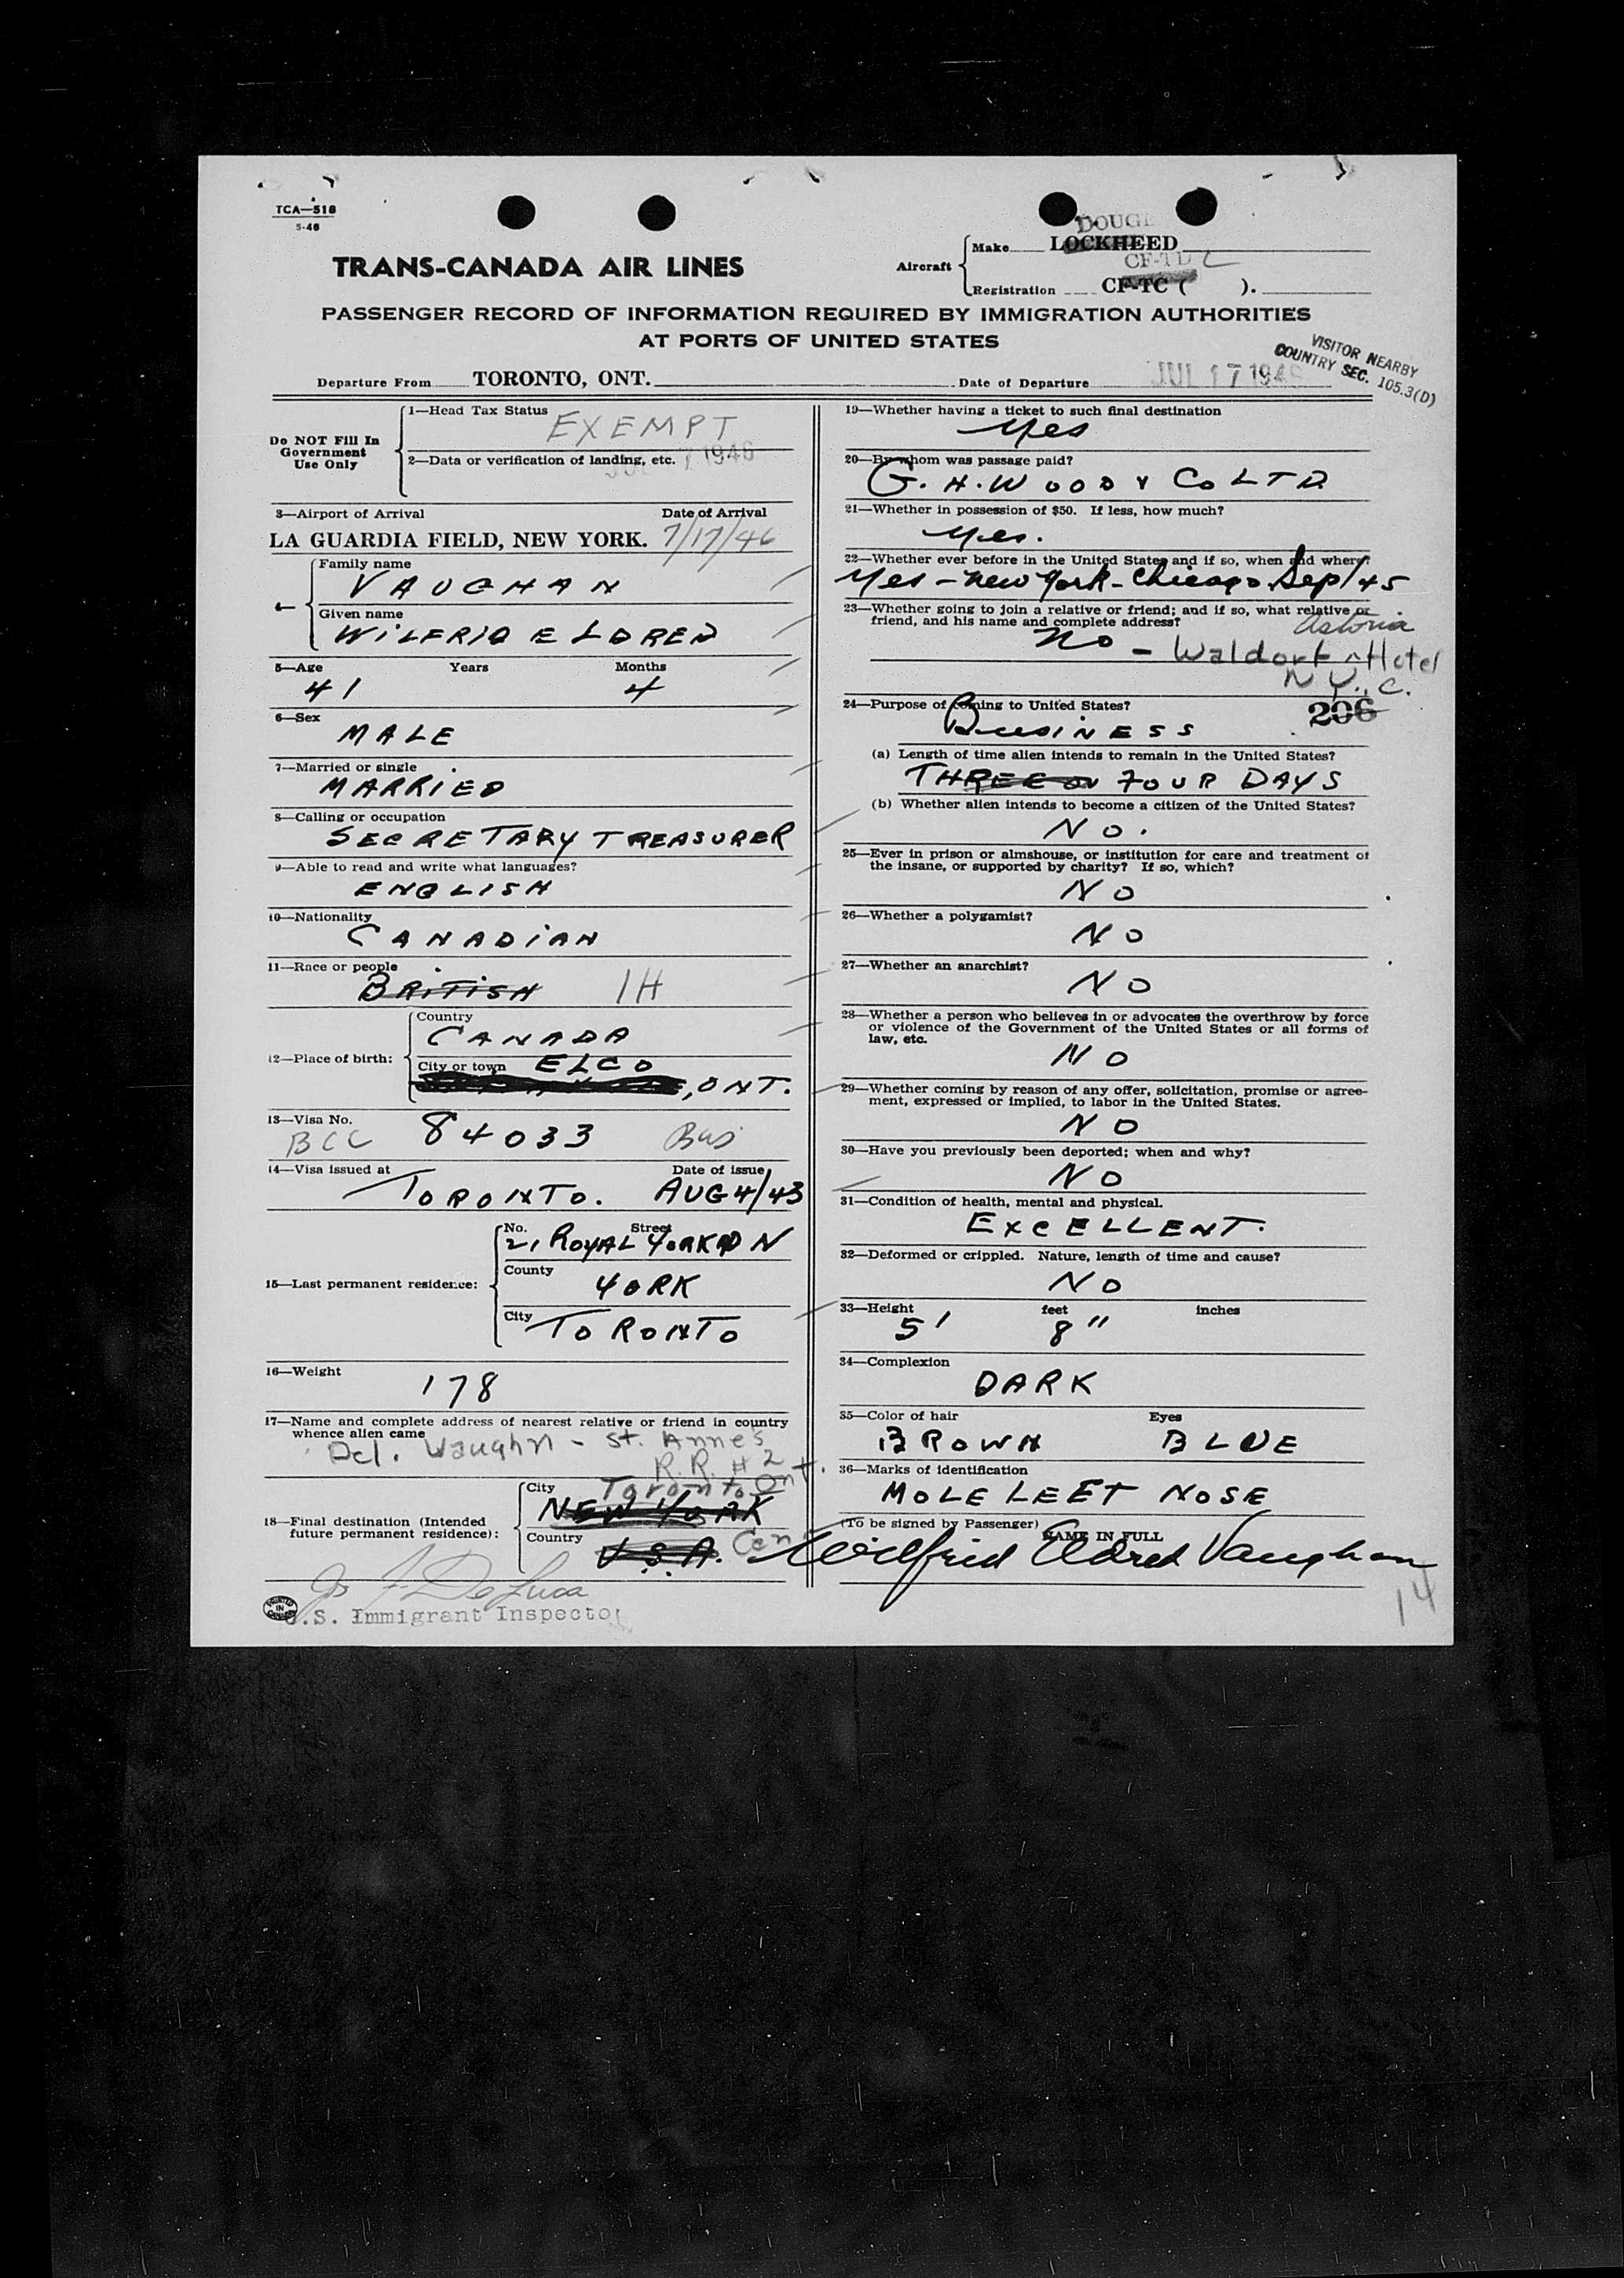 TCA—518
5-46
DOUGL
Make LOCKHEED
TRANS-CANADA AIR LINES
Aircraft
CF-TD
Registration CF-TC ( ).
PASSENGER RECORD OF INFORMATION REQUIRED BY IMMIGRATION AUTHORITIES
AT PORTS OF UNITED STATES
VISITOR NEARBY
COUNTRY SEC. 105.3(D)
Departure From TORONTO, ONT. Date of Departure JUL 17 1946
Do NOT Fill In
Government
Use Only
1—Head Tax Status
EXEMPT
2—Data or verification of landing, etc. 1946
3—Airport of Arrival Date of Arrival
LA GUARDIA FIELD, NEW YORK. 7/17/46
4—
Family name
VAUGHAN
Given name
WILFRID ELDRED
5—Age Years Months
41 4
6—Sex
MALE
7—Married or single
MARRIED
8—Calling or occupation
SECRETARY TREASURER
9—Able to read and write what languages?
ENGLISH
10—Nationality
CANADIAN
11—Race or people
BRITISH IH
12—Place of birth:
Country
CANADA
City or town ELCO
, ONT.
13—Visa No.
BCC 84033 Bus
14—Visa issued at Date of issue
TORONTO. AUG 4/43
15—Last permanent residence:
No. Street
21 ROYAL YORK RD N
County
YORK
City
TORONTO
16—Weight
178
17—Name and complete address of nearest relative or friend in country
whence alien came
Waughn - St. Annes
R.R. #2
Toronto Ont.
18—Final destination (Intended
future permanent residence):
City
NEW YORK
Country
U.S.A. Can
J. F. De Luca
PRINTED IN CANADA
U.S. Immigrant Inspector
19—Whether having a ticket to such final destination
Yes
20—By whom was passage paid?
G. H. WOOD & CO LTD
21—Whether in possession of $50. If less, how much?
Yes.
22—Whether ever before in the United States and if so, when and where?
Yes - New York - Chicago Sep/45
23—Whether going to join a relative or friend; and if so, what relative or
friend, and his name and complete address?
Astoria
No - Waldorf ^ Hotel
N.Y.C.
24—Purpose of coming to United States?
206
BUSINESS
(a) Length of time alien intends to remain in the United States?
THREE OR FOUR DAYS
(b) Whether alien intends to become a citizen of the United States?
NO.
25—Ever in prison or almshouse, or institution for care and treatment of
the insane, or supported by charity? If so, which?
NO
26—Whether a polygamist?
NO
27—Whether an anarchist?
NO
28—Whether a person who believes in or advocates the overthrow by force
or violence of the Government of the United States or all forms of
law, etc.
NO
29—Whether coming by reason of any offer, solicitation, promise or agree-
ment, expressed or implied, to labor in the United States.
NO
30—Have you previously been deported; when and why?
NO
31—Condition of health, mental and physical.
EXCELLENT.
32—Deformed or crippled. Nature, length of time and cause?
NO
33—Height feet inches
5' 8"
34—Complexion
DARK
35—Color of hair Eyes
BROWN BLUE
36—Marks of identification
MOLE LEFT NOSE
(To be signed by Passenger) NAME IN FULL
Wilfrid Eldred Vaughan
14